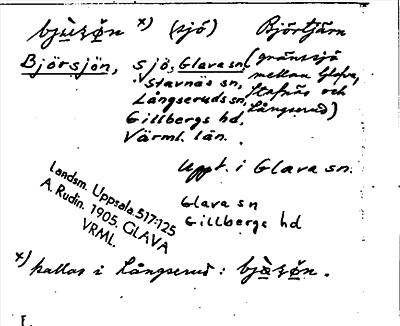 bjùsǿn x) (sjö) Björtjärn
Björsjön, sjö, Glava sn, (gränssjö
Stavnäs sn, mellan Glava,
Långseruds sn, Stafnäs och
Gillbergs hd, Långserud)
Värml. län.
Uppt. i Glava sn.
Glava sn
Gillbergs hd
Landsm. Uppsala. 517:125
A. Rudin. 1905. GLAVA
VRML.
x) kallas i Långserud:
F.